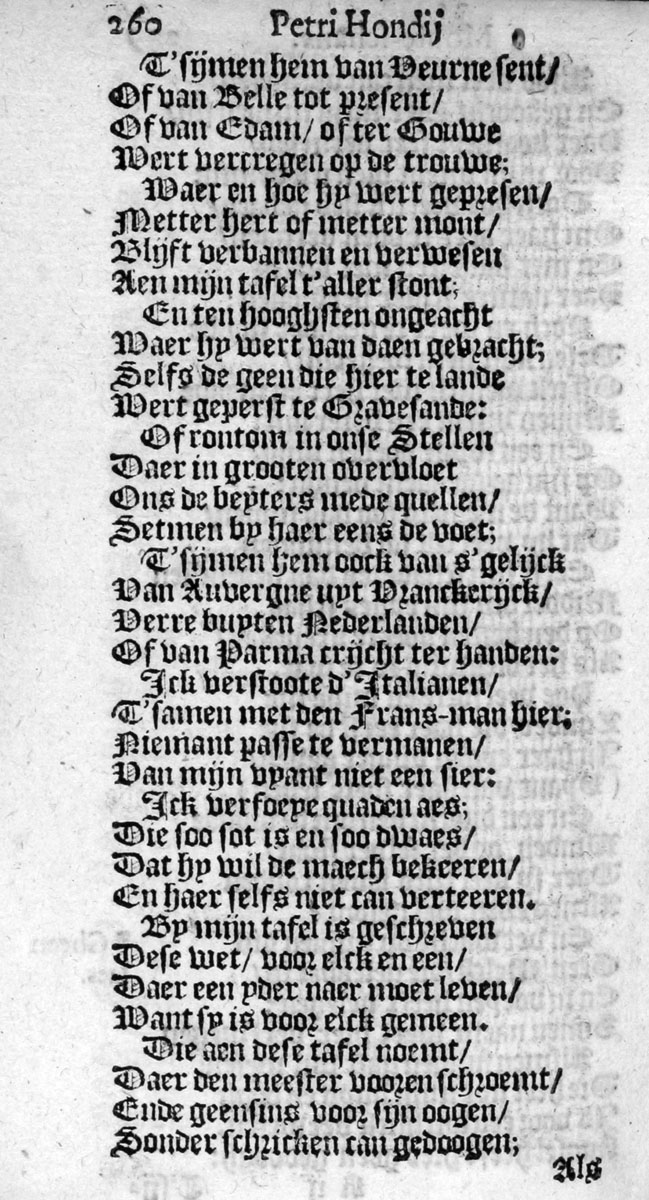 260 Petri Hondij
T'sijmen hem van Veurne sent/
Of van Belle tot present/
Of van Edam/ of ter Gouwe
Wert vercregen op de trouwe;
Waer en hoe hy wert gepresen/
Metter hert of metter mont/
Blijft verbannen en verwesen
Aen mijn tafel t'aller stont;
En ten hooghsten ongeacht
Waer hy wert van daen gebracht;
Selfs de geen die hier te lande
Wert geperst te Gravesande:
Of rontom in onse Stellen
Daer in grooten overvloet
Ons de beyters mede quellen/
Setmen by haer eens de voet;
T'sijmen hem oock van s'gelijck
Van Auvergne uyt Vranckerijck/
Verre buyten Nederlanden/
Of van Parma crijcht ter handen:
Ick verstoote d'Italianen/
T'samen met den Frans-man hier;
Niemant passe te vermanen/
Van mijn vyant niet een sier:
Ick verfoeye quaden aes;
Die soo sot is en soo dwaes/
Dat hy wil de maech bekeeren/
En haer selfs niet can verteeren.
By mijn tafel is geschreven
Dese wet/ voor elck en een/
Daer een yder naer moet leven/
Want sy is voor elck gemeen.
Die aen dese tafel noemt/
Daer den meester vooren schroemt/
Ende geensins voor sijn oogen/
Sonder schricken can gedoogen;
Als